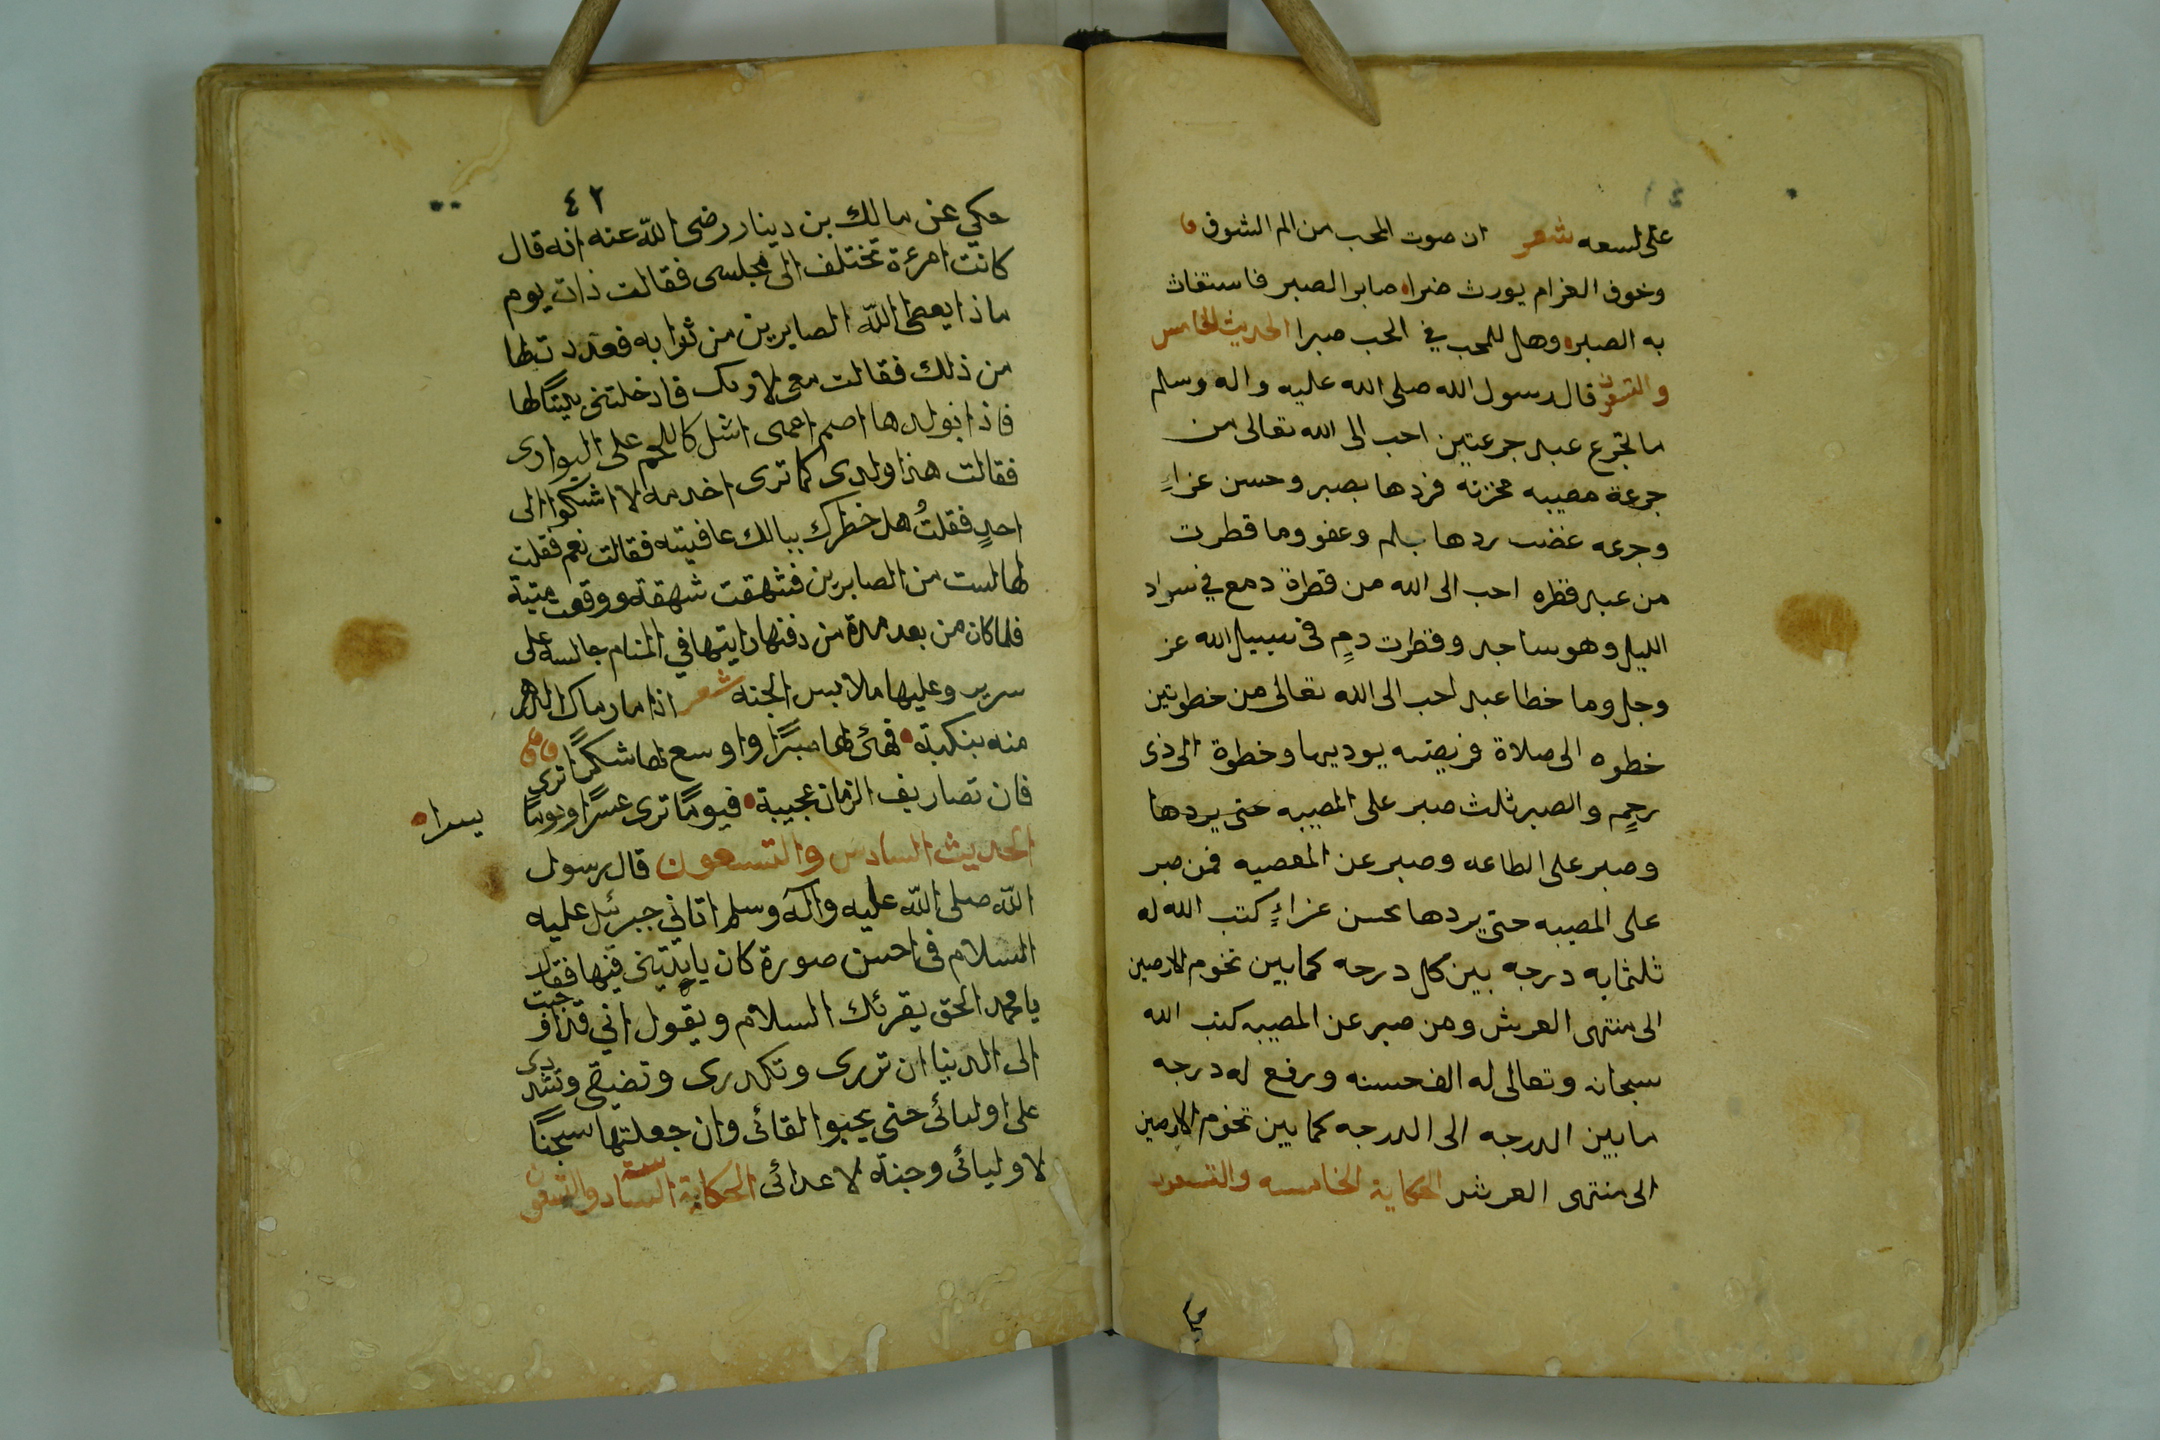 على لسعه شعر ان صوت المحب من الم الشوق
وخوف الغرام يورث ضرا صابر الصبر فاستغاث
به الصبر وهل للمحب في الحب صبرا الحديث الخامس
والتسعون قال رسول الله صلى الله عليه واله وسلم
ما تجرع عبد جرعتين احب الى الله تعالى من
جرعة مصيبه محزنه فردها بصبر وحسن عزاءٍ
وجرعه غضب ردها بحلم وعفو وما قطرت
من عبد قطره احب الى الله من قطرة دمع في سواد
الليل وهو ساجد وقطرت دمٍ في سبيل الله عز
وجل وما خطا عبد احب الى الله تعالى من خطوتين
خطوه الى صلاة فريضه يوديها وخطوة الى ذى
رحمٍ والصبر ثلث صبر على المصيبه حتى يردها
وصبر على الطاعه وصبر عن المعصيه فمن صبر
على المصيبه حتى يردها بحسن عزاءٍ كتب الله له
ثلثمايه درجه بين كل درجه كما بين تخوم الارضين
الى منتهى العرش ومن صبر عن المصيبه كتب الله
سبحانه وتعالى له الف حسنه ورفع له درجه
ما بين الدرجه الى الدرجه كما بين تخوم الارضين
الى منتهى العرش الحكاية الخامسه والتسعون
٤٢
حكي عن مالك بن دينار رضى اللّه عنه انه قال
كانت امرءة تختلف الى مجلسى فقالت ذات يوم
ماذا يعطى اللّه الصابرين من ثوابه فعددت لها
من ذلك فقالت معى لاريك فادخلتنى بيتًا لها
فاذا بولدها اصم اعمى اشل كاللحم على البوارى
فقالت هذا ولدى كما ترى اخدمه لا اشكوا الى
احدٍ فقلتُ هل خطرك ببالك عافيته فقالت نعم فقلت
لها لست من الصابرين فشهقت شهقة ووقعت ميتة
فلما كان من بعد مدة من دفنها رايتها في المنام جالسه على
سرير وعليها ملابس الجنه شعر اذا ما رماك الدهر
منه بنكبة فهئ لها صبرًا واوسع لها شكرًا
فان تصاريف الزمان عجيبة فيومًا ترى عسرًا ويومًا ترى
يسرا
الحديث السادس والتسعون قال رسول
اللّه صلى اللّه عليه وآله وسلم اتاني جبرئل عليه
السلام في احسن صورة كان ياتيتنى فيها فقال
يا محمد الحق يقرئك السلام ويقول اني قد اوحيت
الى الدنيا ان تررى وتكدرى وتضيقى وتشددى
على اوليائى حتى يحبوا لقائى وان جعلتها سجنًا
لاوليائى وجنة لاعدائى الحكاية السادسة والتسعون